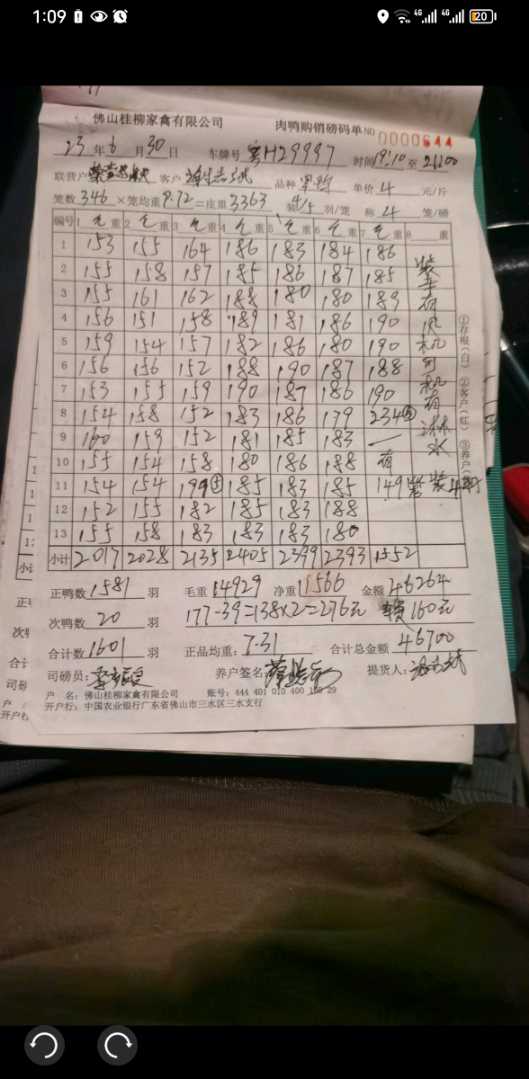 1:09
20
佛山桂柳家禽有限公司
肉鸭购销磅码单 NO 0000644
23 年 6 月 30 日 车牌号 粤H29997 时间 19:10 至 21:00
联营户 客户 品种 单价 4 元/斤
笼数 346 × 笼均重 9.72 = 笼重 3363 4/5 羽/笼 称 4 笼/磅
编号 1 毛 重 2 毛 重 3 毛 重 4 毛 重 5 毛 重 6 毛 重 7 毛 重 8 重
1 153 155 164 186 183 184 186
2 155 158 157 185 186 187 185
3 155 161 162 188 180 180 189
4 156 151 158 189 181 186 190
5 159 154 157 182 186 180 190
6 156 156 152 188 190 187 188
7 153 155 159 190 187 186 190
8 154 158 152 183 186 179 234
9 160 159 152 181 185 183 —
10 155 154 158 180 186 188
11 154 154 199 185 183 185 149
12 152 155 182 185 183 188
13 155 158 183 183 183 180
小计 2017 2028 2135 2405 2399 2393 1552
装车有风机司机有淋水
①存根(白) ②客户(红) ③养户
正鸭数 1581 羽 毛重 14929 净重 11566 金额 46264
次鸭数 20 羽 177-39=138×2=276元 160元
合计数 1601 羽 正品均重: 7.31 合计总金额 46700
司磅员: 养户签名 提货人:
户 名: 佛山桂柳家禽有限公司 账号: 444 401 010 400 150 29
开户行: 中国农业银行广东省佛山市三水区三水支行